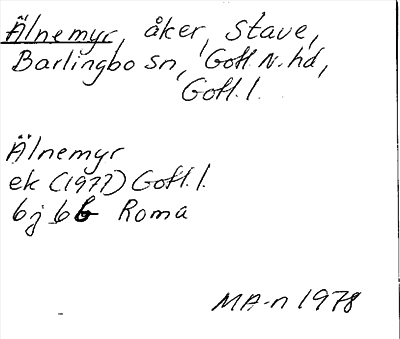 Älnemyr, åker, Stave,
Barlingbo sn, Gotl. N. hd,
Gotl. l.
Älnemyr
ek (1977) Gotl. l.
6j 6b Roma
MA-n 1978